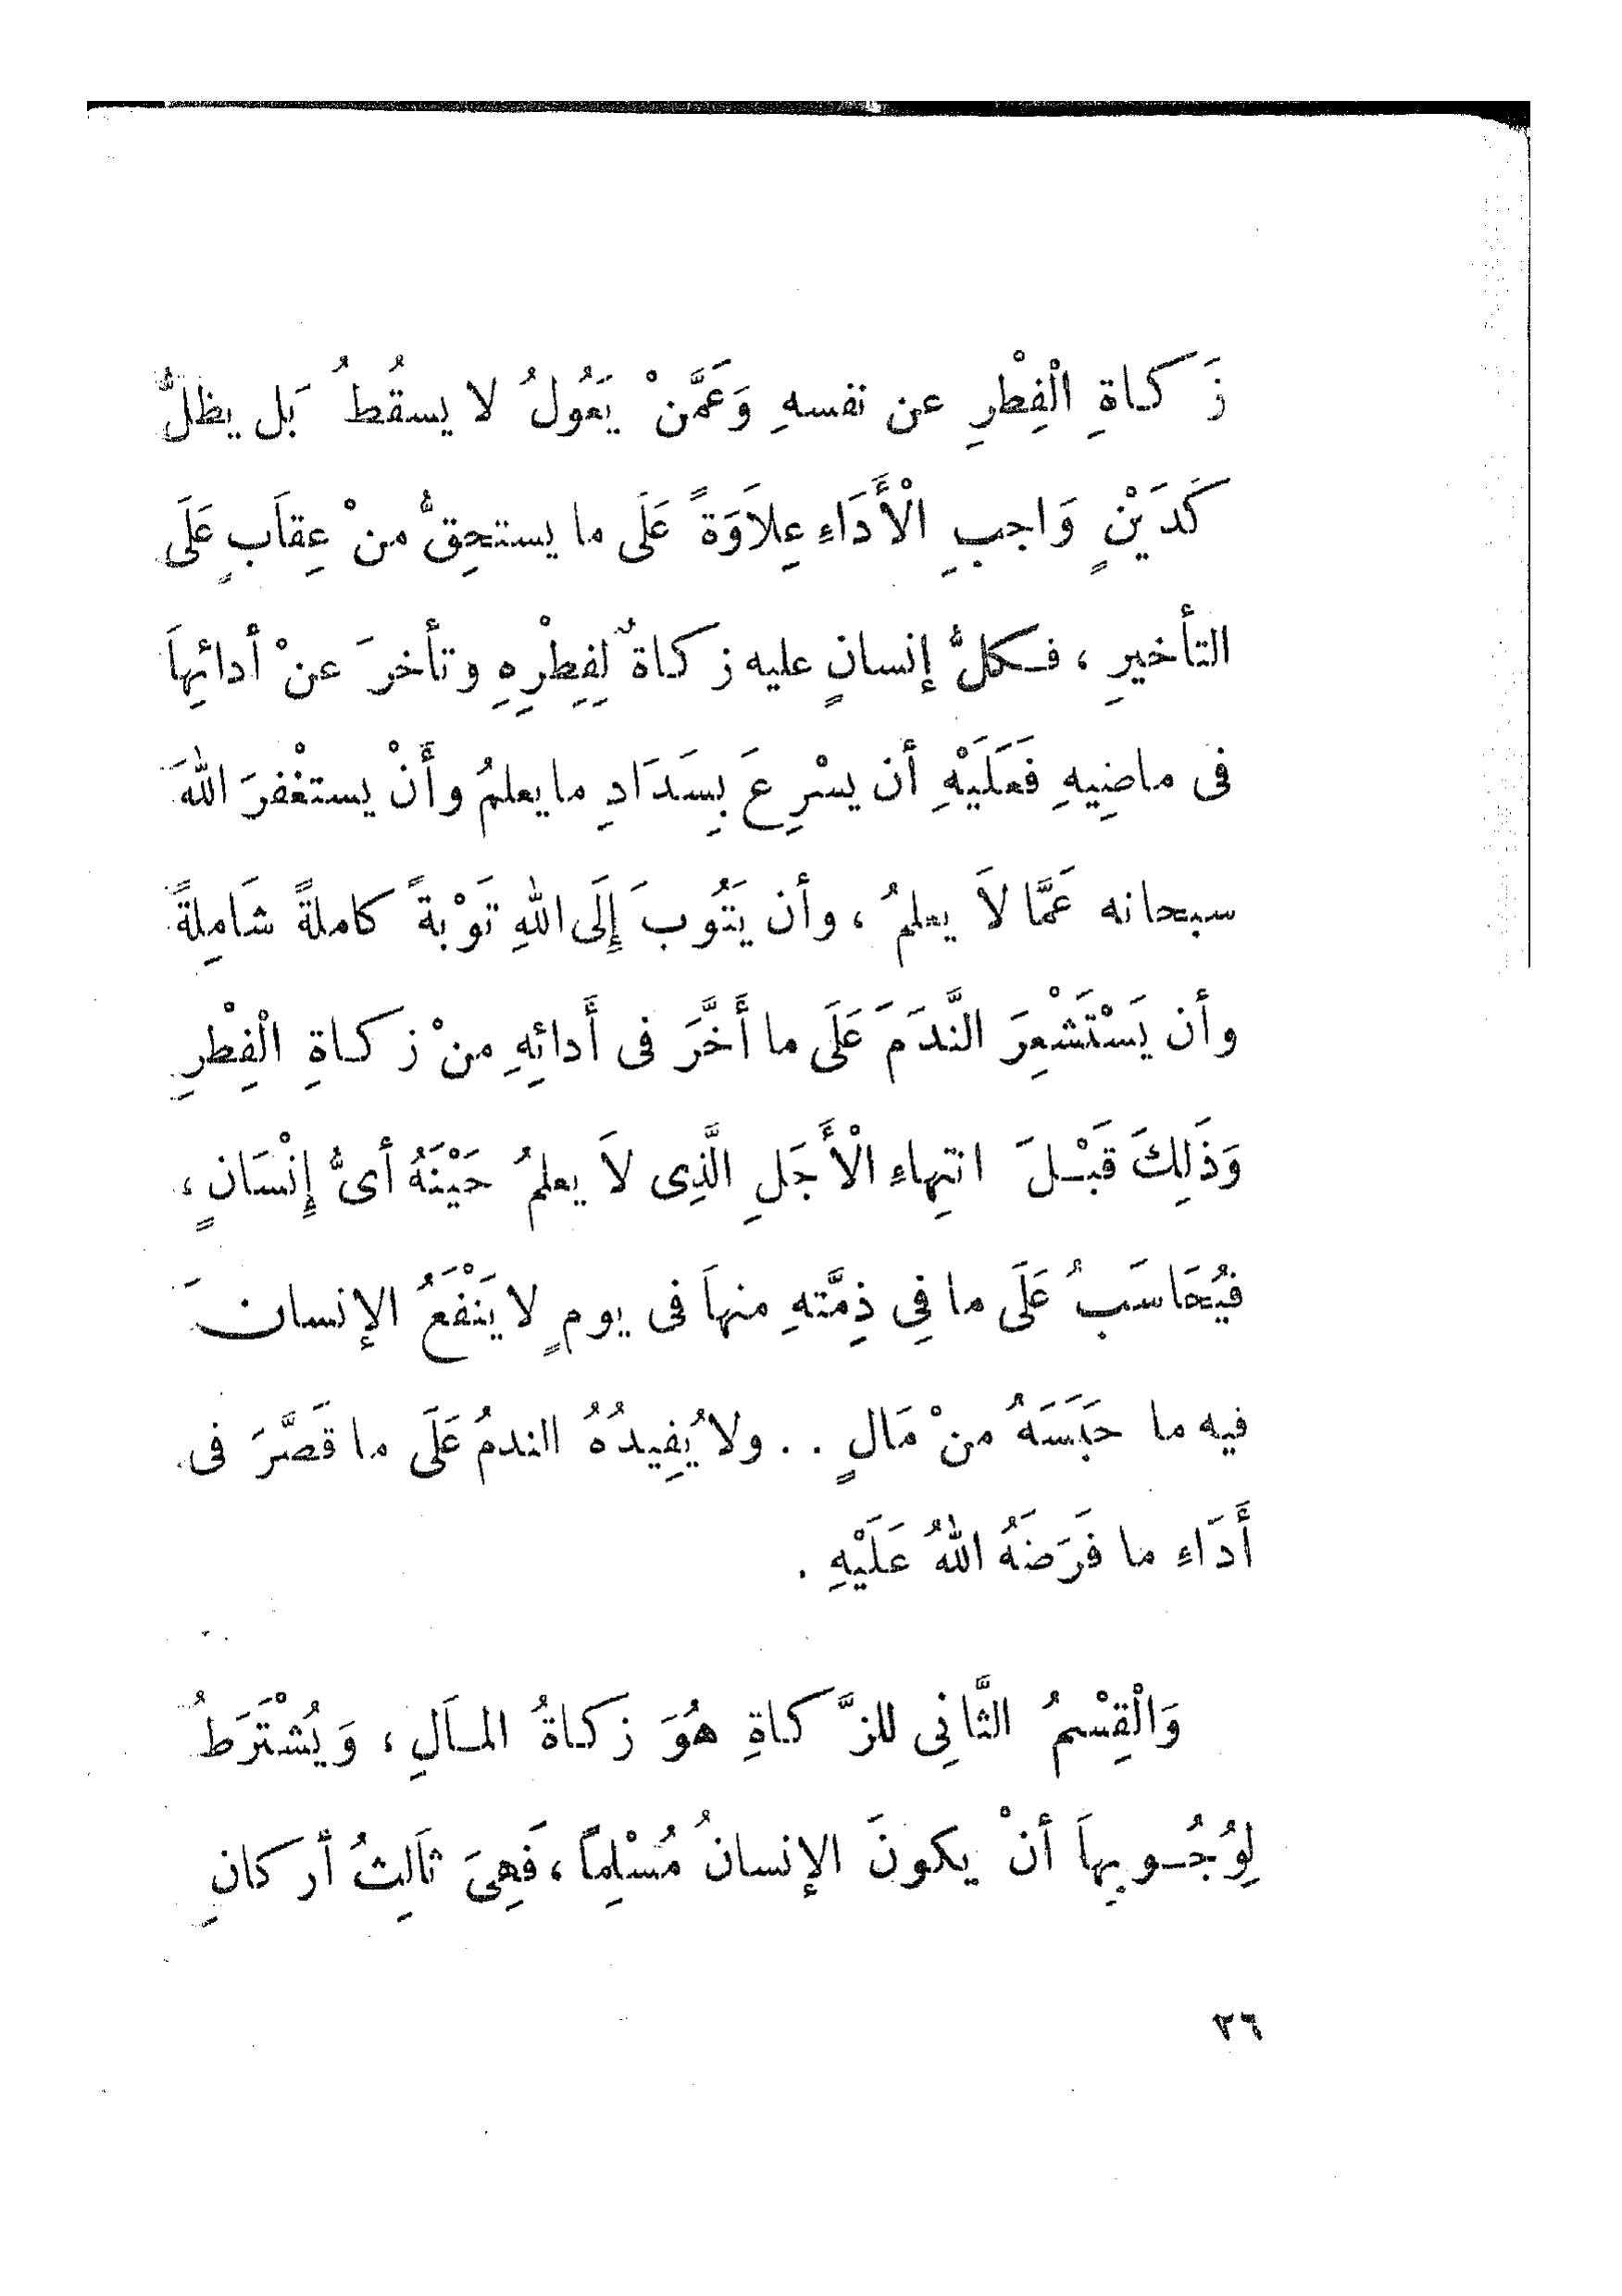 زَكاةِ الْفِطْرِ عن نفسهِ وَعَمَّنْ يَعُولُ لا يسقُطُ بَل يظلُّ
كَدَيْنٍ وَاجبِ الْأَدَاءِ عِلاَوَةً عَلَى ما يستحِقُّ منْ عِقاَبٍ عَلَى
التأخيرِ ، فكلُّ إنسانٍ عليه زكاةٌ لِفِطْرِهِ وتأخرَ عنْ أدائِهاَ
فى ماضِيهِ فَعَلَيْهِ أن يسْرِعَ بِسَدَادِ ما يعلمُ وأَنْ يستغْفرَ اللهَ
سبحانه عَمَّا لاَ يعلمُ ، وأن يَتُوبَ إِلَى اللهِ تَوْبةً كاملةً شَامِلةً
وأن يَسْتَشْعِرَ النَّدَمَ عَلَى ما أَخَّرَ فى أَدائِهِ منْ زكاةِ الْفِطْرِ
وَذَلِكَ قَبْلَ انتِهاءِ الْأَجَلِ الَّذِى لاَ يعلمُ حَيْنَهُ أىُّ إِنْسَانٍ ،
فيُحَاسَبُ عَلَى ما فِى ذِمَّتهِ منهاَ فى يومٍ لا يَنْفَعُ الإنسانَ
فيه ما حَبَسَهُ منْ مَالٍ . . ولا يُفِيدُهُ الندمُ عَلَى ما قَصَّرَ فى
أَدَاءِ ما فَرَضَهُ اللهُ عَلَيْهِ .
وَالْقِسْمُ الثَّانِى للزَّكاةِ هُوَ زكاةُ المـاَلِ ، وَيُشْتَرَطُ
لِوُجُـوبِهاَ أنْ يكونَ الإنسانُ مُسْلِماً ، فَهِىَ ثاَلِثُ أركانِ
٢٦